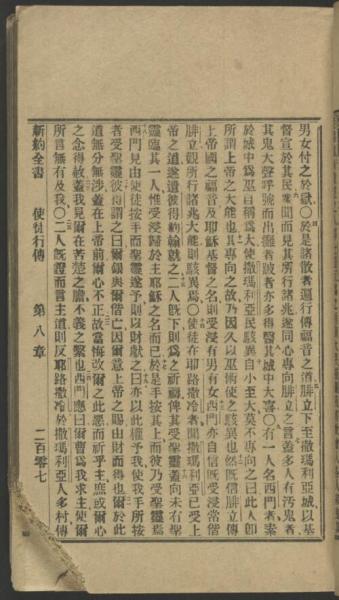 男女付之於獄〇於是諸散者遍行傳福音之道腓立下至撒瑪利亞城以基
督宣於其民衆聞而見其所行諸兆遂同心專向腓立之言蓋多人有汚鬼者
其鬼大聲呼號而出癱者跛者亦多得醫其城中大喜〇有一人名西門者素
於城中爲巫自稱爲大使撒瑪利亞民駭異自小至大莫不專向之曰此人卽
所謂上帝之大能也其專向之故乃因久以巫術使之駭異也然旣信腓立傳
上帝國之福音及耶穌基督之名則受浸有男有女西門亦自信旣受浸常偕
腓立觀所行諸兆大能則駭異焉〇使徒在耶路撒冷者聞撒瑪利亞已受上
帝之道遂遣彼得約翰就之二人旣下則爲之祈禱俾其受聖靈蓋向未有聖
靈臨其一人惟受浸歸於主耶穌之名而已於是手按其上而彼乃受聖靈焉
西門見由使徒按手而聖靈遂予則以財獻之曰亦以此權予我使我手所按
者受聖靈彼得謂之曰爾銀與爾偕亡因爾意上帝之賜由財而得也爾於此
道無分無涉蓋在上帝前爾心不正故當悔改爾之此惡而祈乎主庶或爾心
之念得赦蓋我見爾在苦楚之膽不義之繫也西門應曰爾曹爲我求主使爾
所言無有及我〇二人旣證而言主道則反耶路撒冷於撒瑪利亞人多村傳
新約全書 使徒行傳 第八章 二百零七